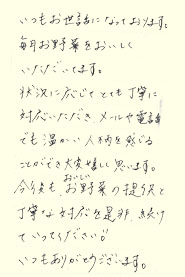 いつもお世話になっております。
毎月お野菜をおいしく
いただいてます。
状況に応じてとても丁寧に
対応いただき メールや電話
でも温かい人柄を感じる
ことができ大変嬉しく思います。
今後も、おいしいお野菜の提供と
丁寧な対応を是非、続け
ていってください!!
いつもありがとうございます。